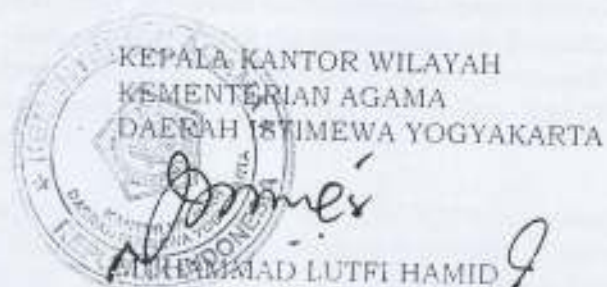 KEPALA KANTOR WILAYAH
KEMENTERIAN AGAMA
DAERAH ISTIMEWA YOGYAKARTA
MUHAMMAD LUTFI HAMID